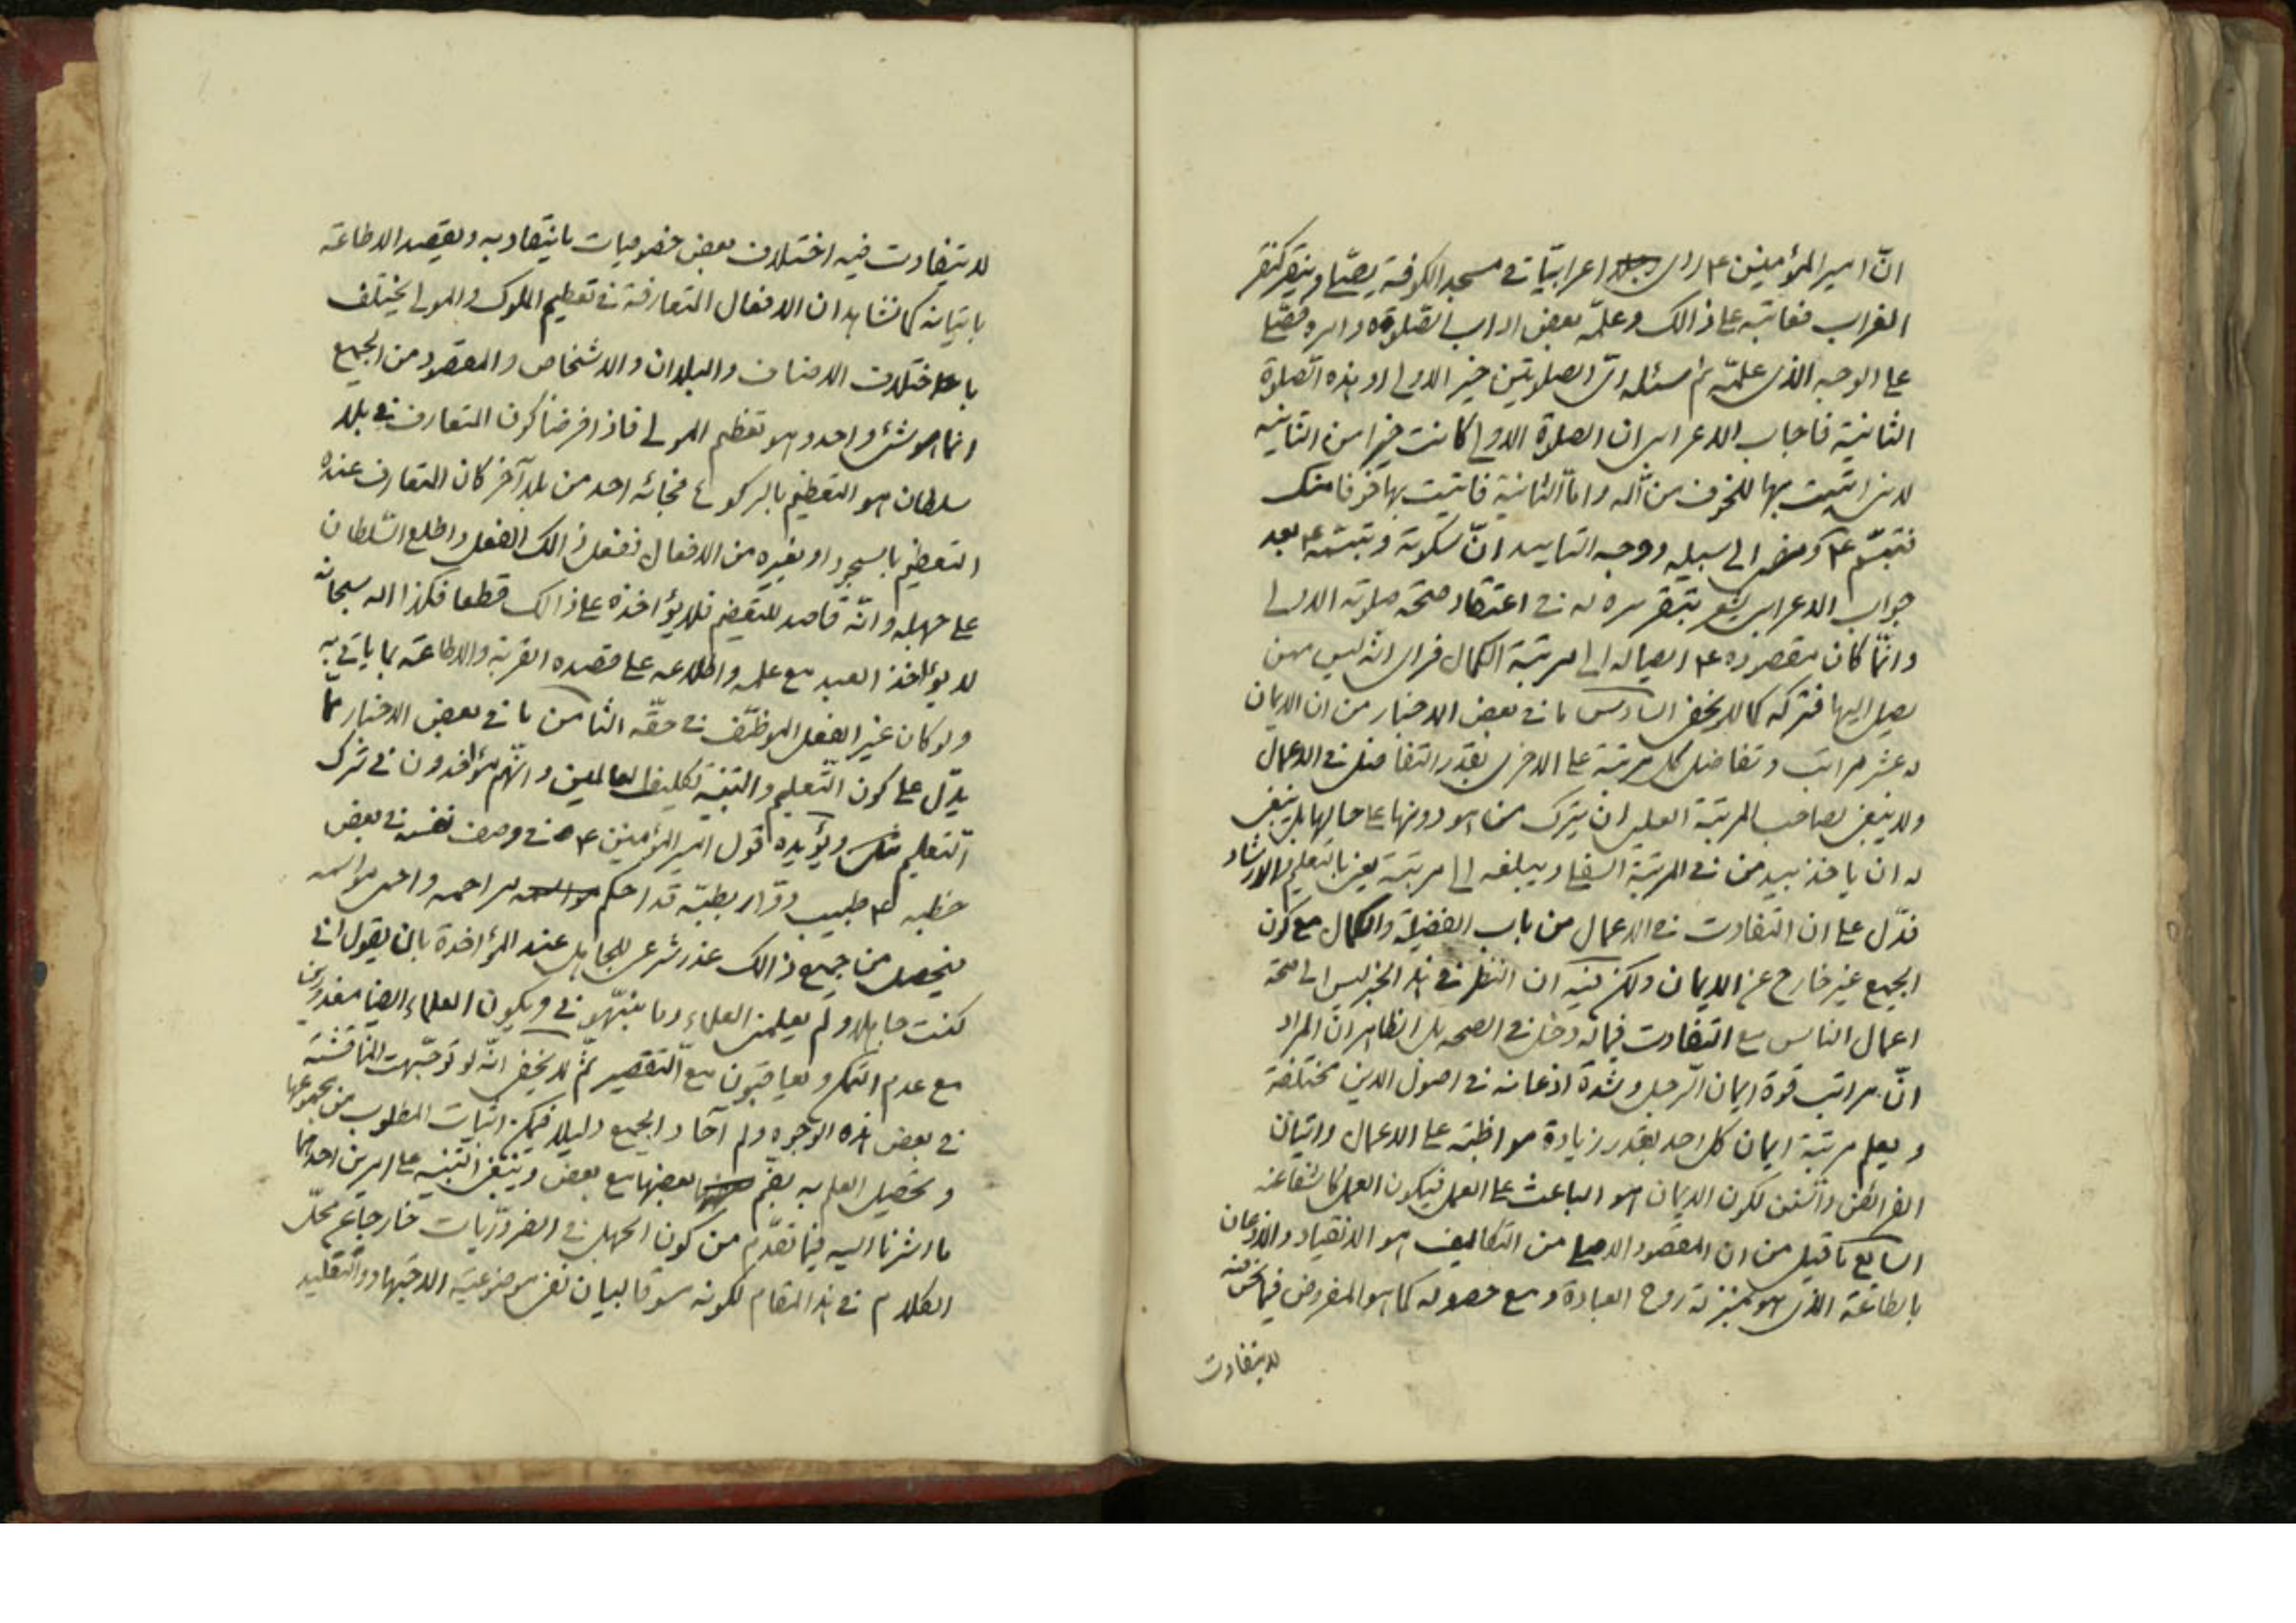 انّ امير المؤمنين ع راى اعرابيّا فى مسجد الكوفة يصلّى وينقر كنقر
الغراب فعاتبه على ذالك وعلّمه بعض اداب الصّلوة وامره فصلّى
على الوجه الذى علّمه ثم سئله اىّ الصلوتين خير الاولى او هذه الصّلوة
الثانية فاجاب الاعرابى ان الصلوة الاولى كانت خيرا من الثانية
لانى اتيت بها للخوف من الله وامّا الثانية فاتيت بها خوفا منك
فتبسّم ع ومضى الى سبيله ووجه التاييد انّ سكوته وتبسّمه ع بعد
جواب الاعرابى يشعر بتقريره له فى اعتقاد صحّة صلوته الاولى
وانّما كان مقصوده ع ايصاله الى مرتبة الكمال فراى انه ليس ممن
يصل اليها فتركه كما لا يخفى السادس ما فى بعض الاخبار من ان الايمان
له عشر مراتب وتفاضل كل مرتبة على الاخرى بقدر التفاضل فى الاعمال
ولا ينبغى لصاحب المرتبة العليا ان يترك من هو دونها على حالها بل ينبغى
له ان ياخذ بيد من فى المرتبة السفلى ويبلغه الى مرتبة يعنى بالتعليم والارشاد
فدّل على ان التفاوت فى الاعمال من باب الفضيلة والكمال مع كون
الجميع غير خارج عن الايمان ولكن فيه ان النظر فى هذا الخبر ليس الى صحة
اعمال الناس مع التفاوت فيما له دخل فى الصحه بل الظاهر انّ المراد
انّ مراتب قوة ايمان الرّجل وشدة اذعانه فى اصول الدين مختلفة
و يعلم مرتبة ايمان كل احد بقدر زيادة مواظبته على الاعمال واتيان
الفرائض والسّنن لكون الايمان هو الباعث على العمل فيكون العمل كاشفا عنه
السابع ما قيل من ان المقصود الاصلى من التكاليف هو الانقياد والاذعان
بالطاعة الذى هو بمنزلة روح العبادة ومع حصوله كما هو المفروض فيما نحن فيه
لا يتفاوت
لا يتفاوت فيه اختلاف بعض خصوصيات ما ينقاد به ويقصد الاطاعة
باتيانه كما نشاهد ان الافعال المتعارفة فى تعظيم الملوك والموالى يختلف
باختلاف الاصناف والبلدان والاشخاص والمقصود من الجميع
انما هو شئ واحد وهو تعظيم المولى فاذا فرضنا كون المتعارف فى بلد
سلطان هو التعظيم بالركوع فجائه احد من بلد آخر كان المتعارف عنده
التعظيم بالسجود او بغيره من الافعال ففعل ذالك الفعل واطلع السّلطان
على جهله وانّه قاصد للتعظيم فلا يؤاخذه على ذالك قطعا فكذا الله سبحانه
لا يؤاخذ العبد مع علمه واطلاعه على قصده القربة والاطاعة بما ياتى به
ولو كان غير الفعل الموظّف فى حقّه الثامن ما فى بعض الاخبار ممّا
يدّل على كون التّعليم والتنبيه تكليفا للعالمين وانّهم مؤاخذون فى ترك
التعليم ويؤيده قول امير المؤمنين ع فى وصف نفسه فى بعض
خطبه ع طبيب دوّار بطبّه قد احكم مراهمه واحمى مواسمه
فيحصل من جميع ذالك عذر شرعى للجاهل عند المؤاخذة بان يقول انى
كنت جاهلا ولم يعلّمنى العلماء وما نبّهونى ويكون العلماء ايضا معذورين
مع عدم التمكن ويعاقبون مع التّقصير ثمّ لا يخفى انّه لو توجّهت المناقشة
فى بعض هذه الوجوه ولم آحاد الجميع دليلا فيمكن اثبات المطلوب من مجموعها
و تحصيل العلم به بضم بعضها مع بعض وينبغى التنبيه على امرين احدهما
ما اشرنا اليه فيما تقدّم من كون الجهل فى الضروريّات خارجا عن محلّ
الكلام فى هذا المقام لكونه سوقا لبيان نفى موضوعيّة الاجتهاد والتّقليد